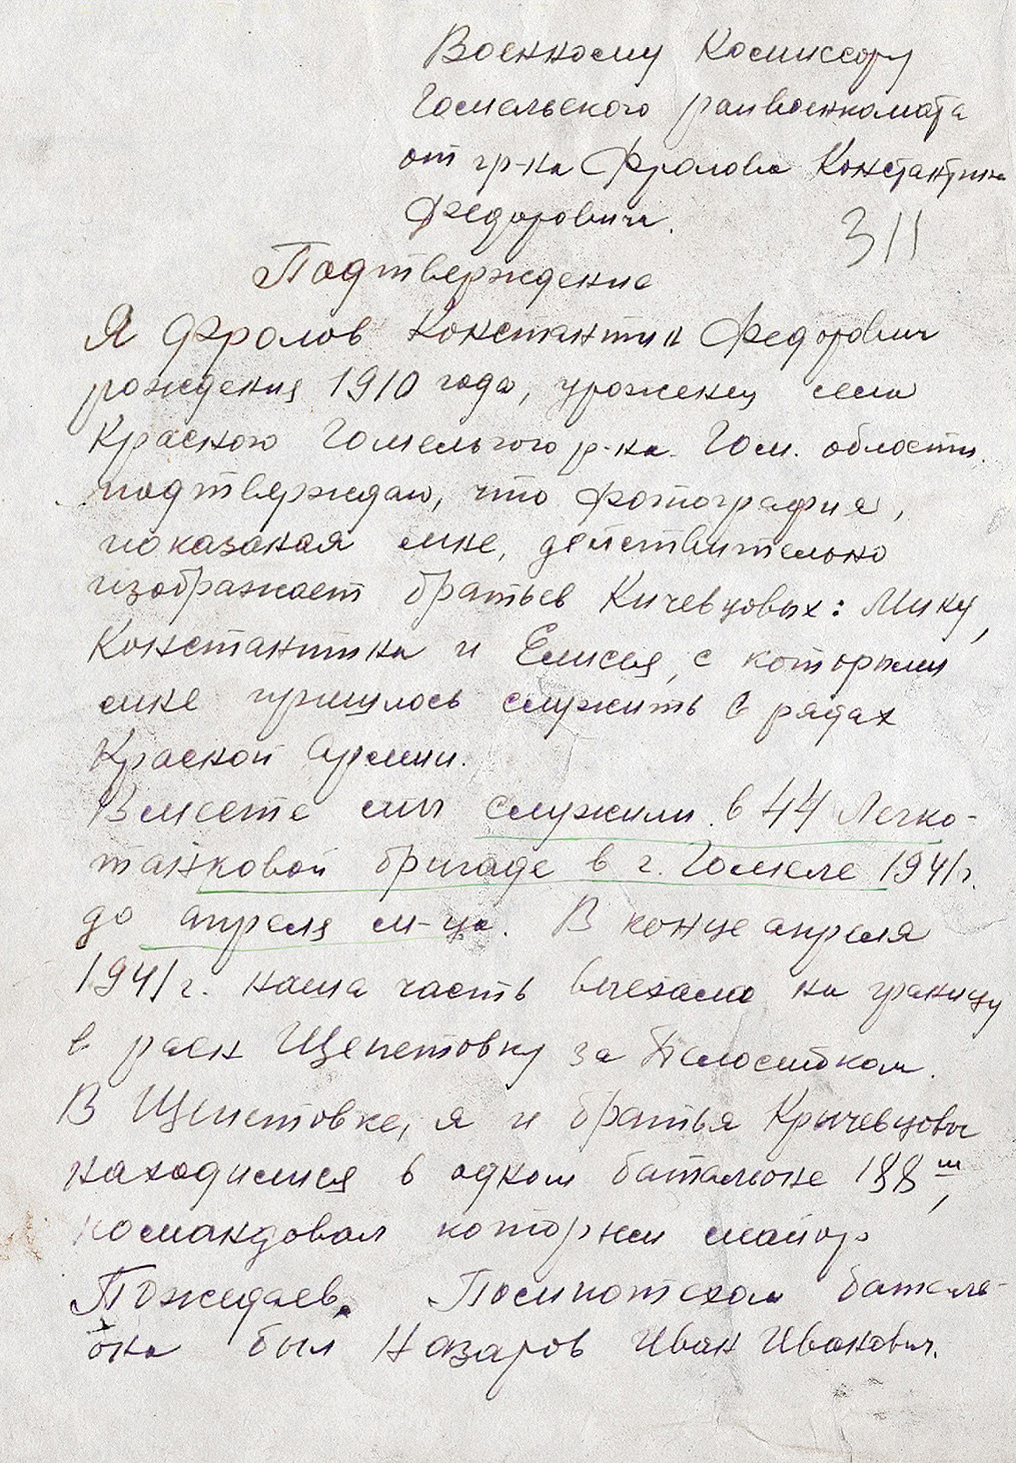 Военному Комиссару
Гомельского райвоенкомата
от гр-на Фролова Константина
Федоровича.
311
Подтверждение
Я Фролов Константин Федорович
рождения 1910 года, уроженец села
Красного Гомельского р-на. Гом. области.
подтверждаю, что фотография,
показаная мне, действительно
изображает братьев Кичевцовых: Мику,
Константина и Елисея, с которыми
мне пришлось служить в рядах
Красной Армии.
Вместе мы служили в 44 Легко-
танковой бригаде в г. Гомеле 1941 г.
до апреля м-ца. В конце апреля
1941 г. наша часть выехала на границу
в раен Щепетовку за Белостоком.
В Щепетовке, я и братья Крычевцовы
находимися в одном батальоне 188 ш,
командовал которым майор
Пожедаев. Помпотехом баталь-
она был Назаров Иван Иванович.